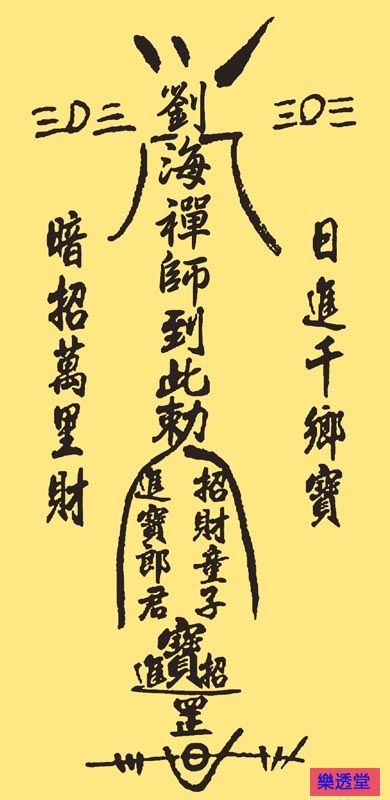 劉海禪師到此勅
日進千鄉寶
暗招萬里財
招財童子
進寶郎君
招寶進
罡
樂透堂